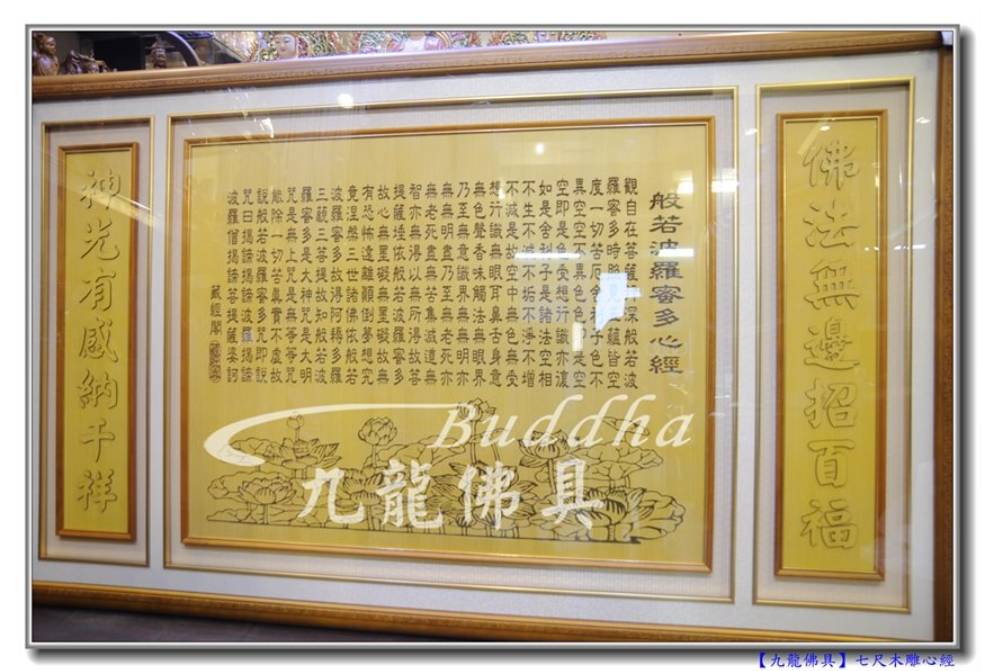 佛法無邊招百福
般若波羅蜜多心經
觀自在菩薩 深般若波
羅蜜多時 蘊皆空
度一切苦厄舍利子色不
異空空不異色色 是空
空即是色受想行識亦復
如是舍利子是諸法空相
不生不滅不垢不淨不增
不減是故空中無色無受
想行識無眼耳鼻舌身意
無色聲香味觸法無眼界
乃至無意識界無無明亦
無無明盡乃至無老死亦
無老死盡無苦集滅道無
智亦無得以無所得故菩
提薩埵依般若波羅蜜多
故心無罣礙無罣礙故無
有恐怖遠離顛倒夢想究
竟涅槃三世諸佛依般若
波羅蜜多故得阿耨多羅
三藐三菩提故知般若波
羅蜜多是大神咒是大明
咒是無上咒是無等等咒
能除一切苦真實不虛故
說般若波羅蜜多咒即說
咒曰揭諦揭諦波羅揭諦
波羅僧揭諦菩提薩婆訶
藏經閣
神光有感納千祥
Buddha
九龍佛具
【九龍佛具】七尺木雕心經